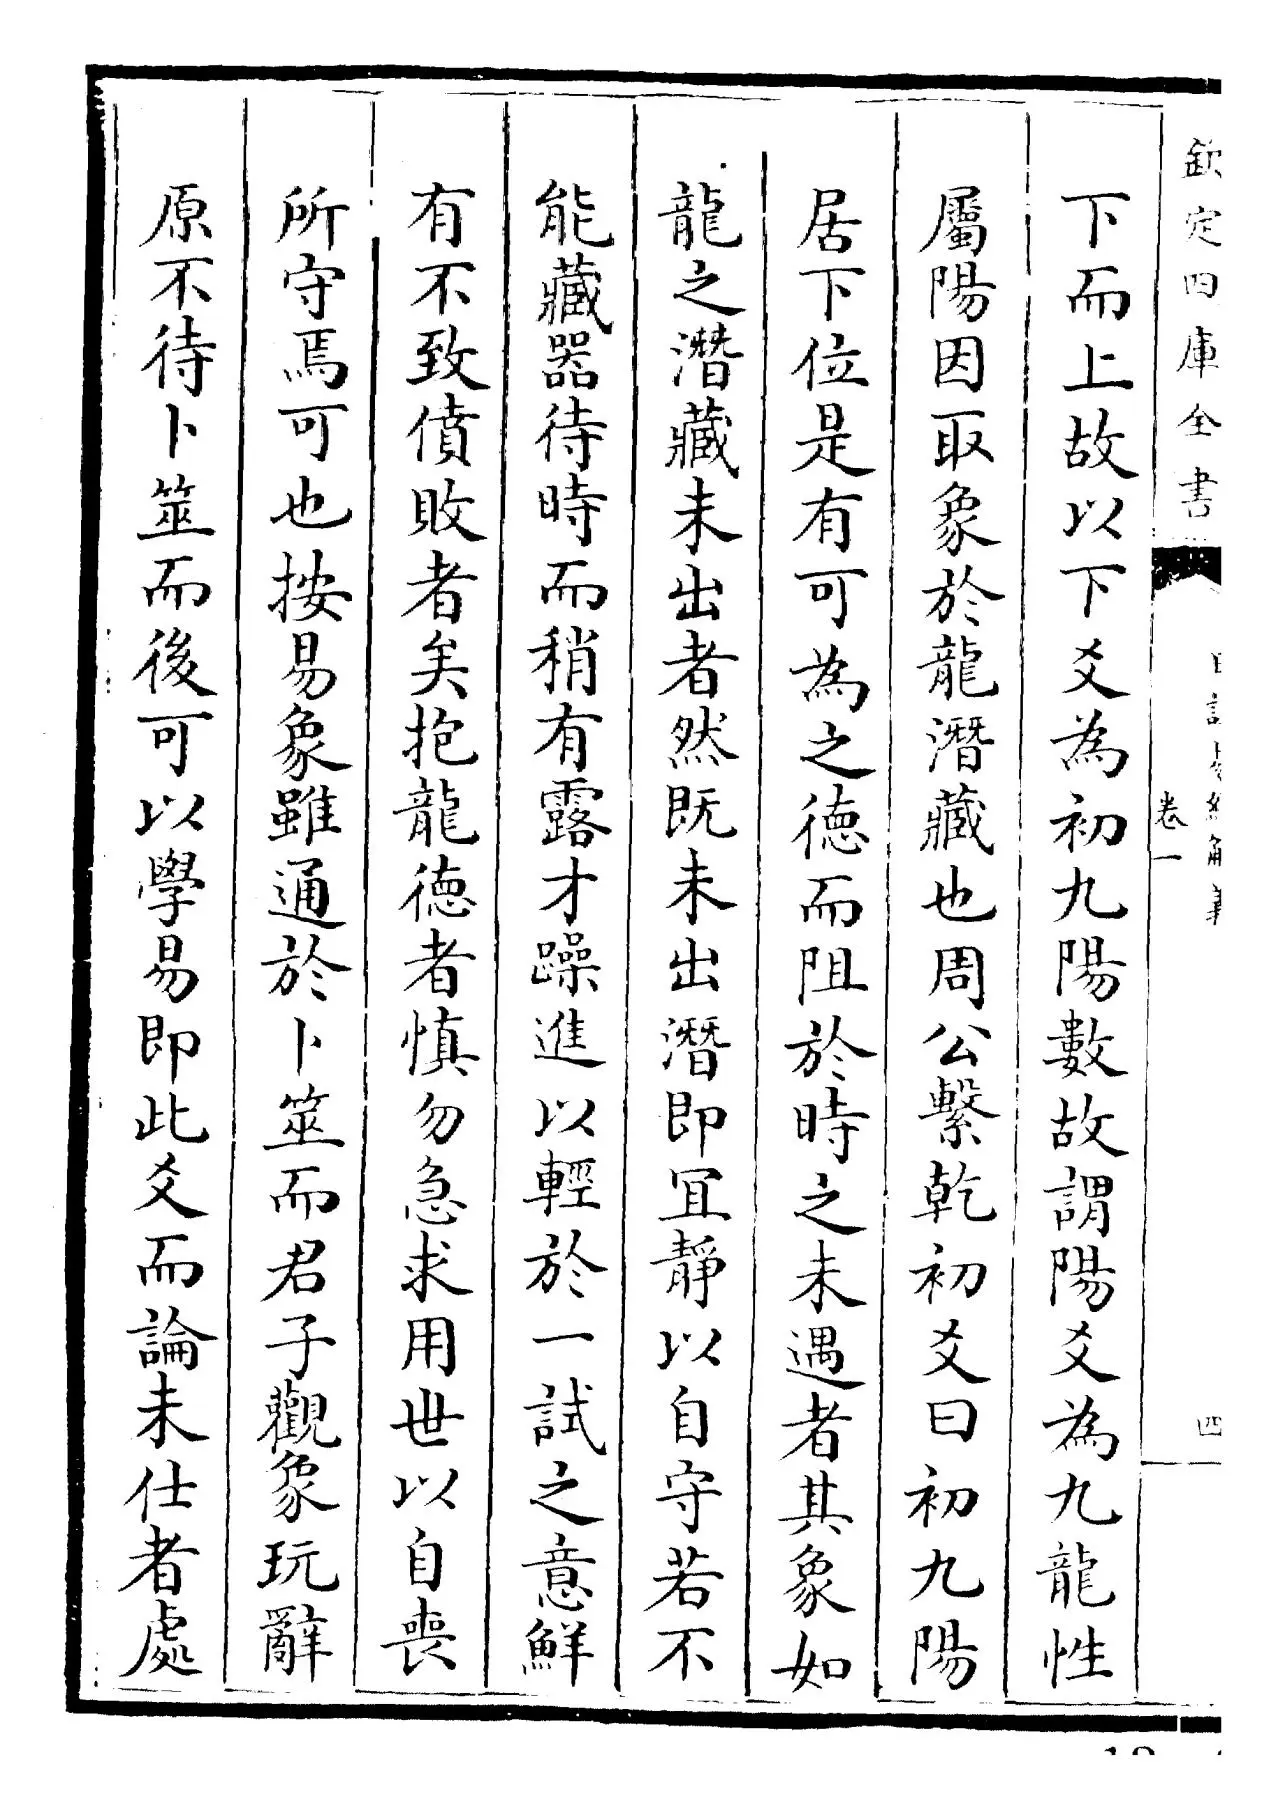 欽定四庫全書
日講易經解義
卷一
四
下而上故以下爻為初九陽數故謂陽爻為九龍性
屬陽因取象於龍潛藏也周公繫乾初爻曰初九陽
居下位是有可為之德而阻於時之未遇者其象如
龍之潛藏未出者然既未出潛即宜靜以自守若不
能藏器待時而稍有露才躁進以輕於一試之意鮮
有不致僨敗者矣抱龍德者慎勿急求用世以自喪
所守焉可也按易象雖通於卜筮而君子觀象玩辭
原不待卜筮而後可以學易即此爻而論未仕者處